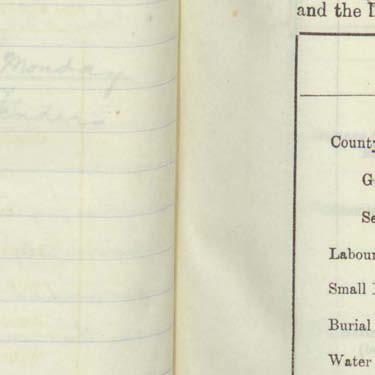 Monday
and the
County
G
Se
Labour
Small
Burial
Water